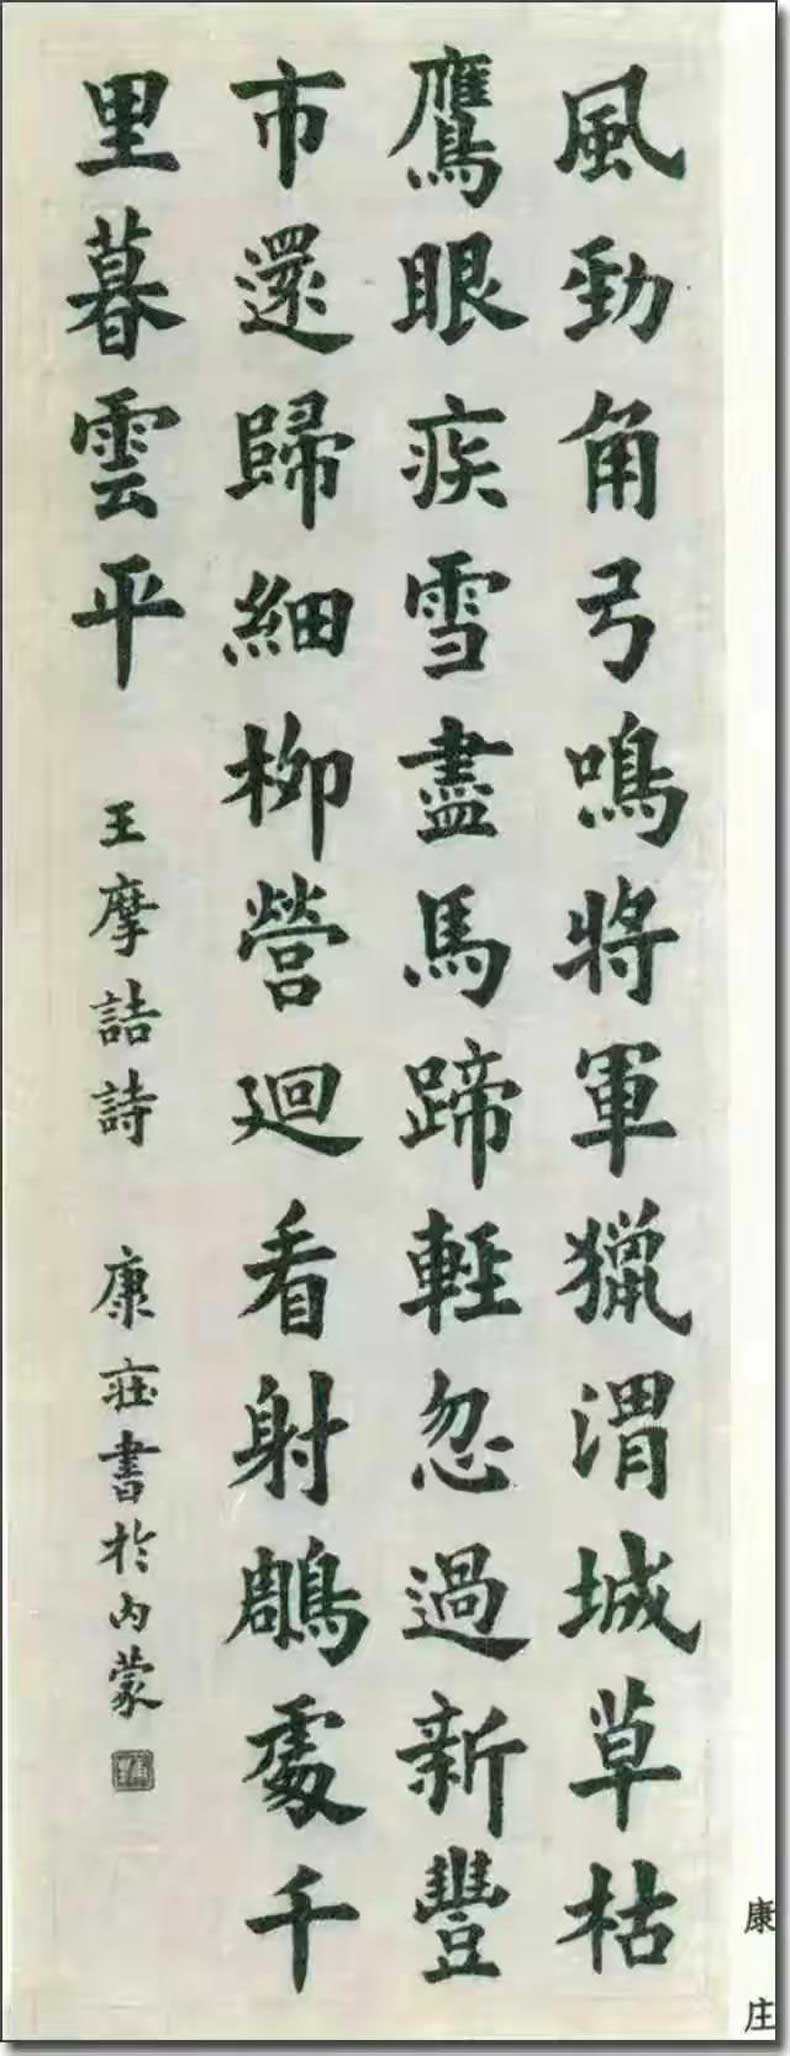 風勁角弓鳴將軍獵渭城草枯
鷹眼疾雪盡馬蹄輕忽過新豐
市還歸細柳營迴看射鵰處千
里暮雲平
王摩詰詩 康莊書於内蒙
康庄